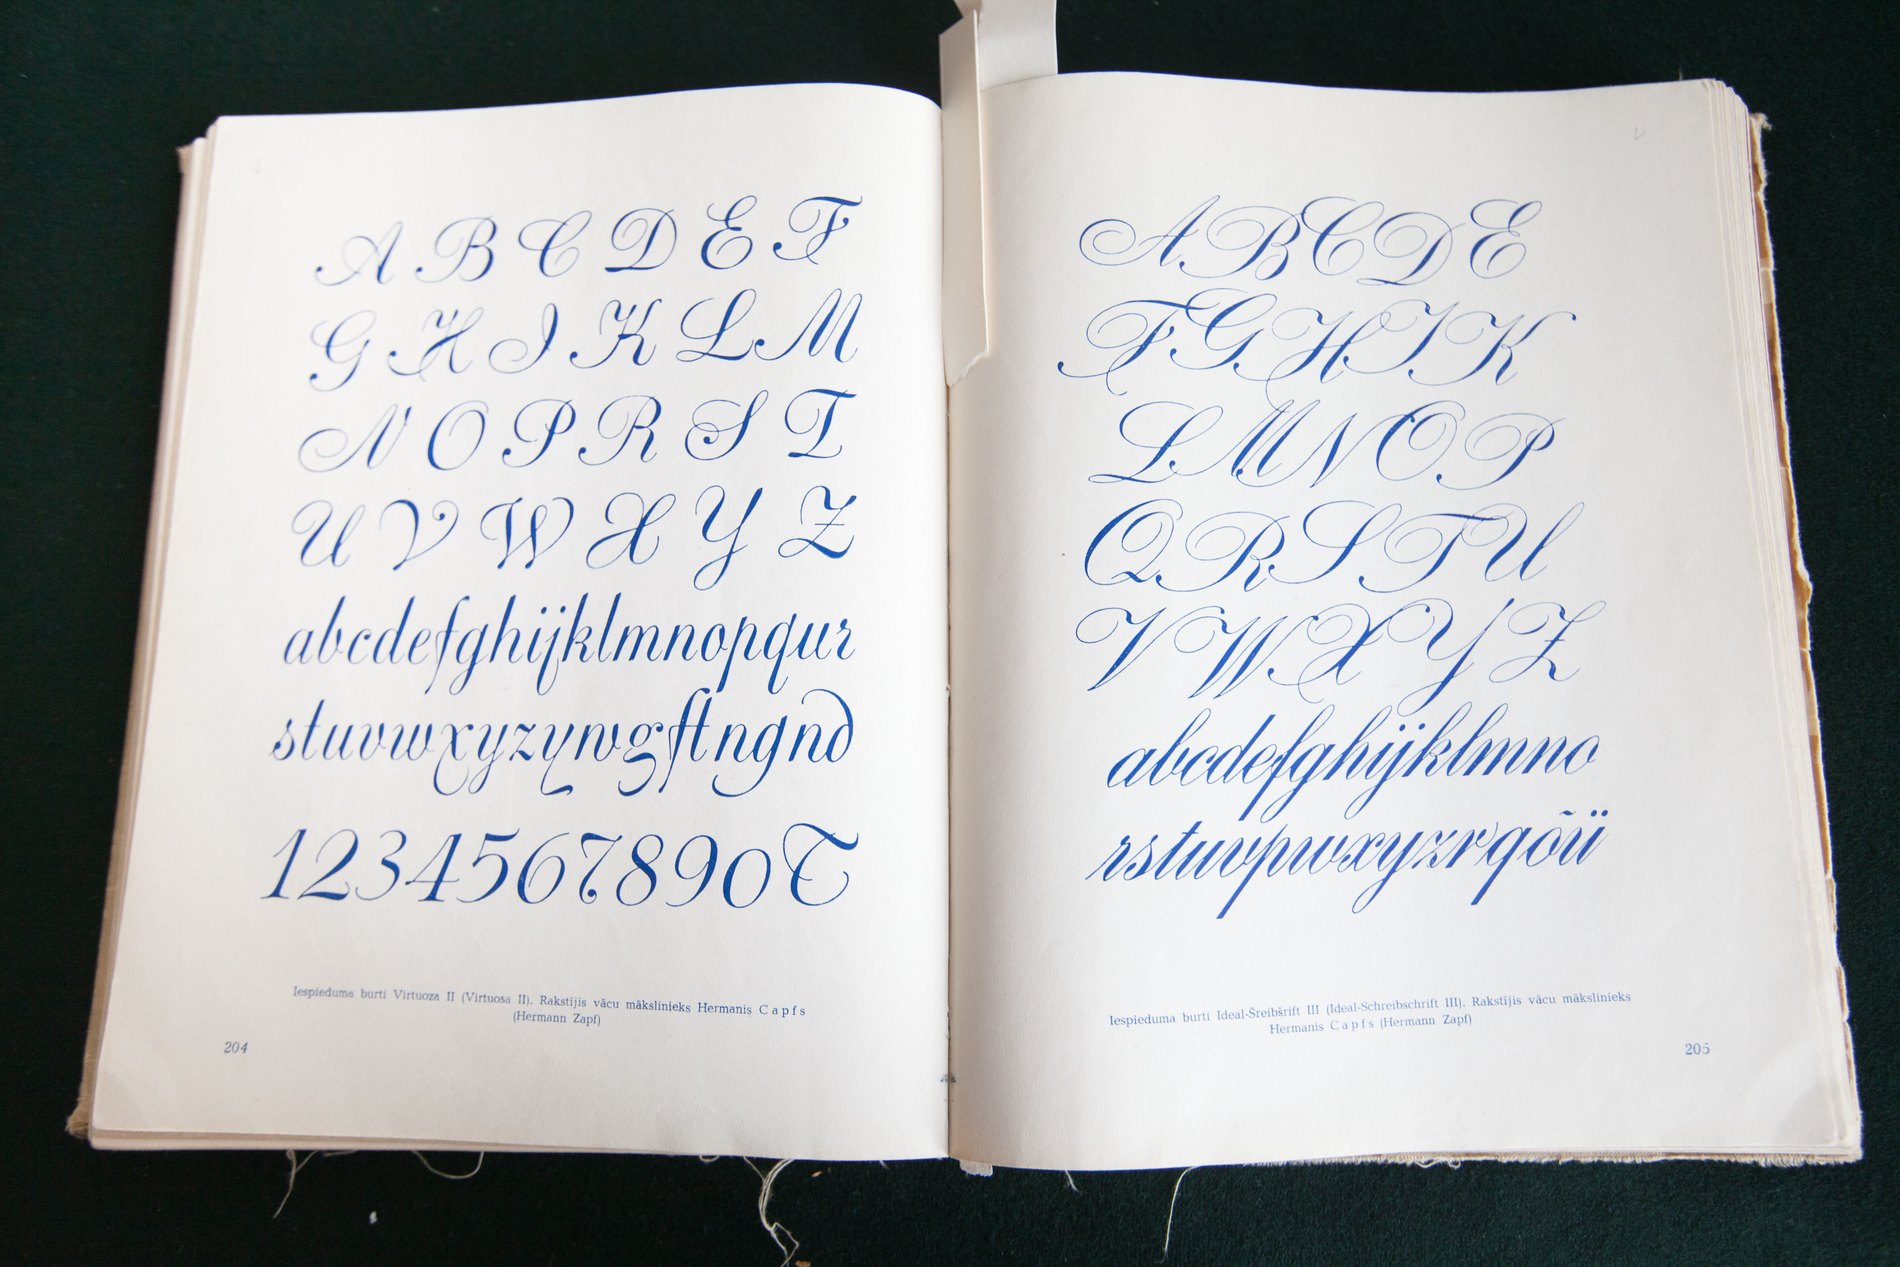 A B C D E F
G H I K L M
N O P R S T
U V W X Y Z
abcdefghijklmnopqur
stuvwxyzynwgftngnd
1234567890T
Iespieduma burti Virtuoza II (Virtuosa II). Rakstījis vācu mākslinieks Hermanis Capfs
(Hermann Zapf)
204
A B C D E
F G H I K
L M N O P
Q R S T U
V W X Y Z
abcdefghijklmno
rstuvpwxyzrqõü
Iespieduma burti Ideal-Šreibšrift III (Ideal-Schreibschrift III). Rakstījis vācu mākslinieks
Hermanis Capfs (Hermann Zapf)
205